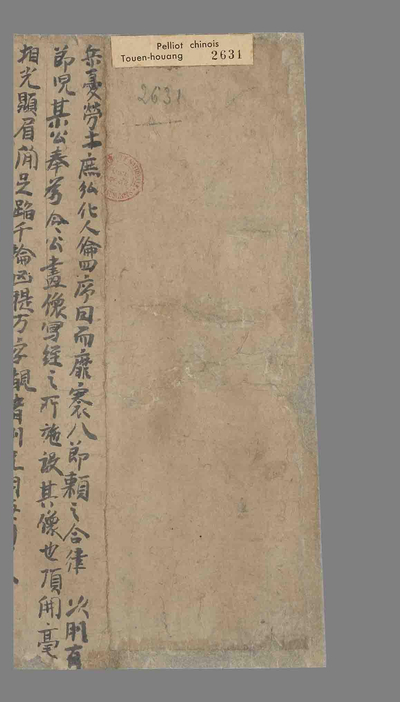 Pelliot chinois
Touen-houang 2631
2631
無憂勞土庶弘化人倫四序因而靡褰八節賴之合律次則有
節児某公奉為令公畫像写經之所施設其像也頂開毫
相光顯眉間足蹈千輪匈提万字觀者